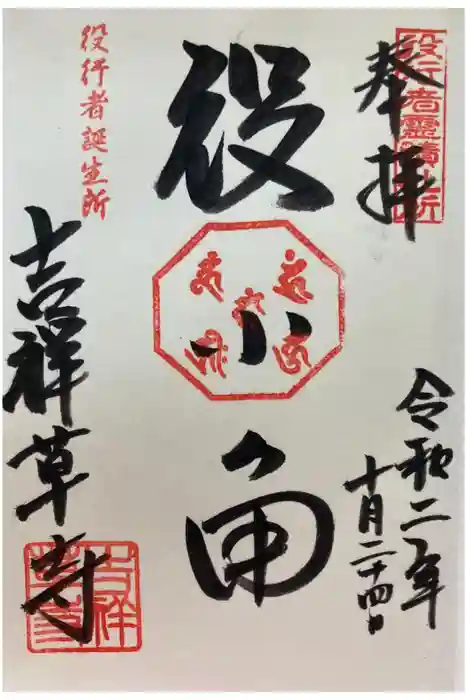 奉拝
役行者霊蹟札所
令和二年
十月二十四日
役小角
役行者誕生所
吉祥草寺
吉祥草寺